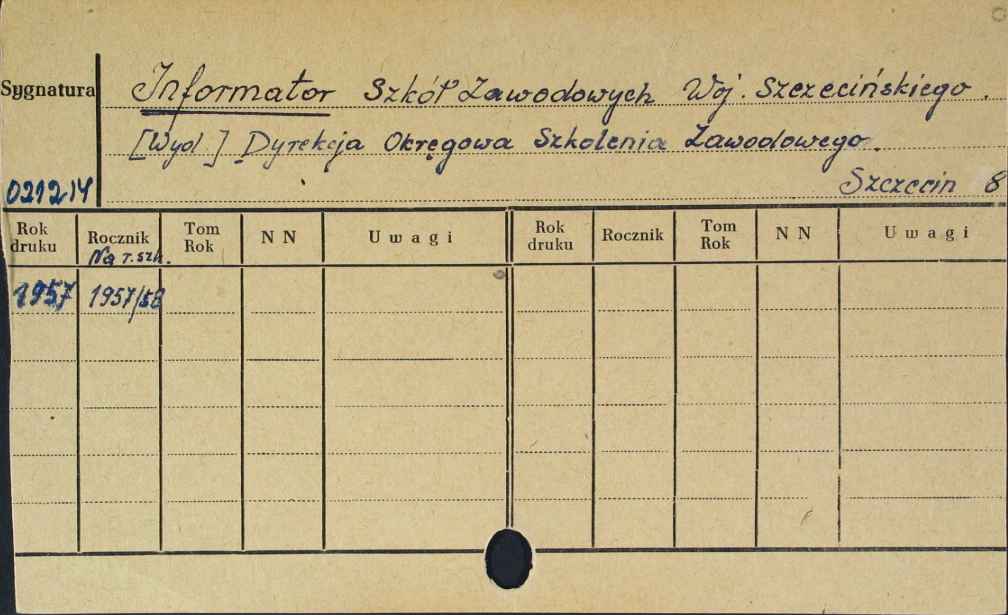 Sygnatura
Informator Szkół Zawodowych Woj. Szczecińskiego.
[Wyd.] Dyrekcja Okręgowa Szkolenia Zawodowego.
021214
Szczecin 8
Rok druku Rocznik Tom Rok N N Uwagi Rok druku Rocznik Tom Rok N N Uwagi
Na r. szk.
1957 1957/58